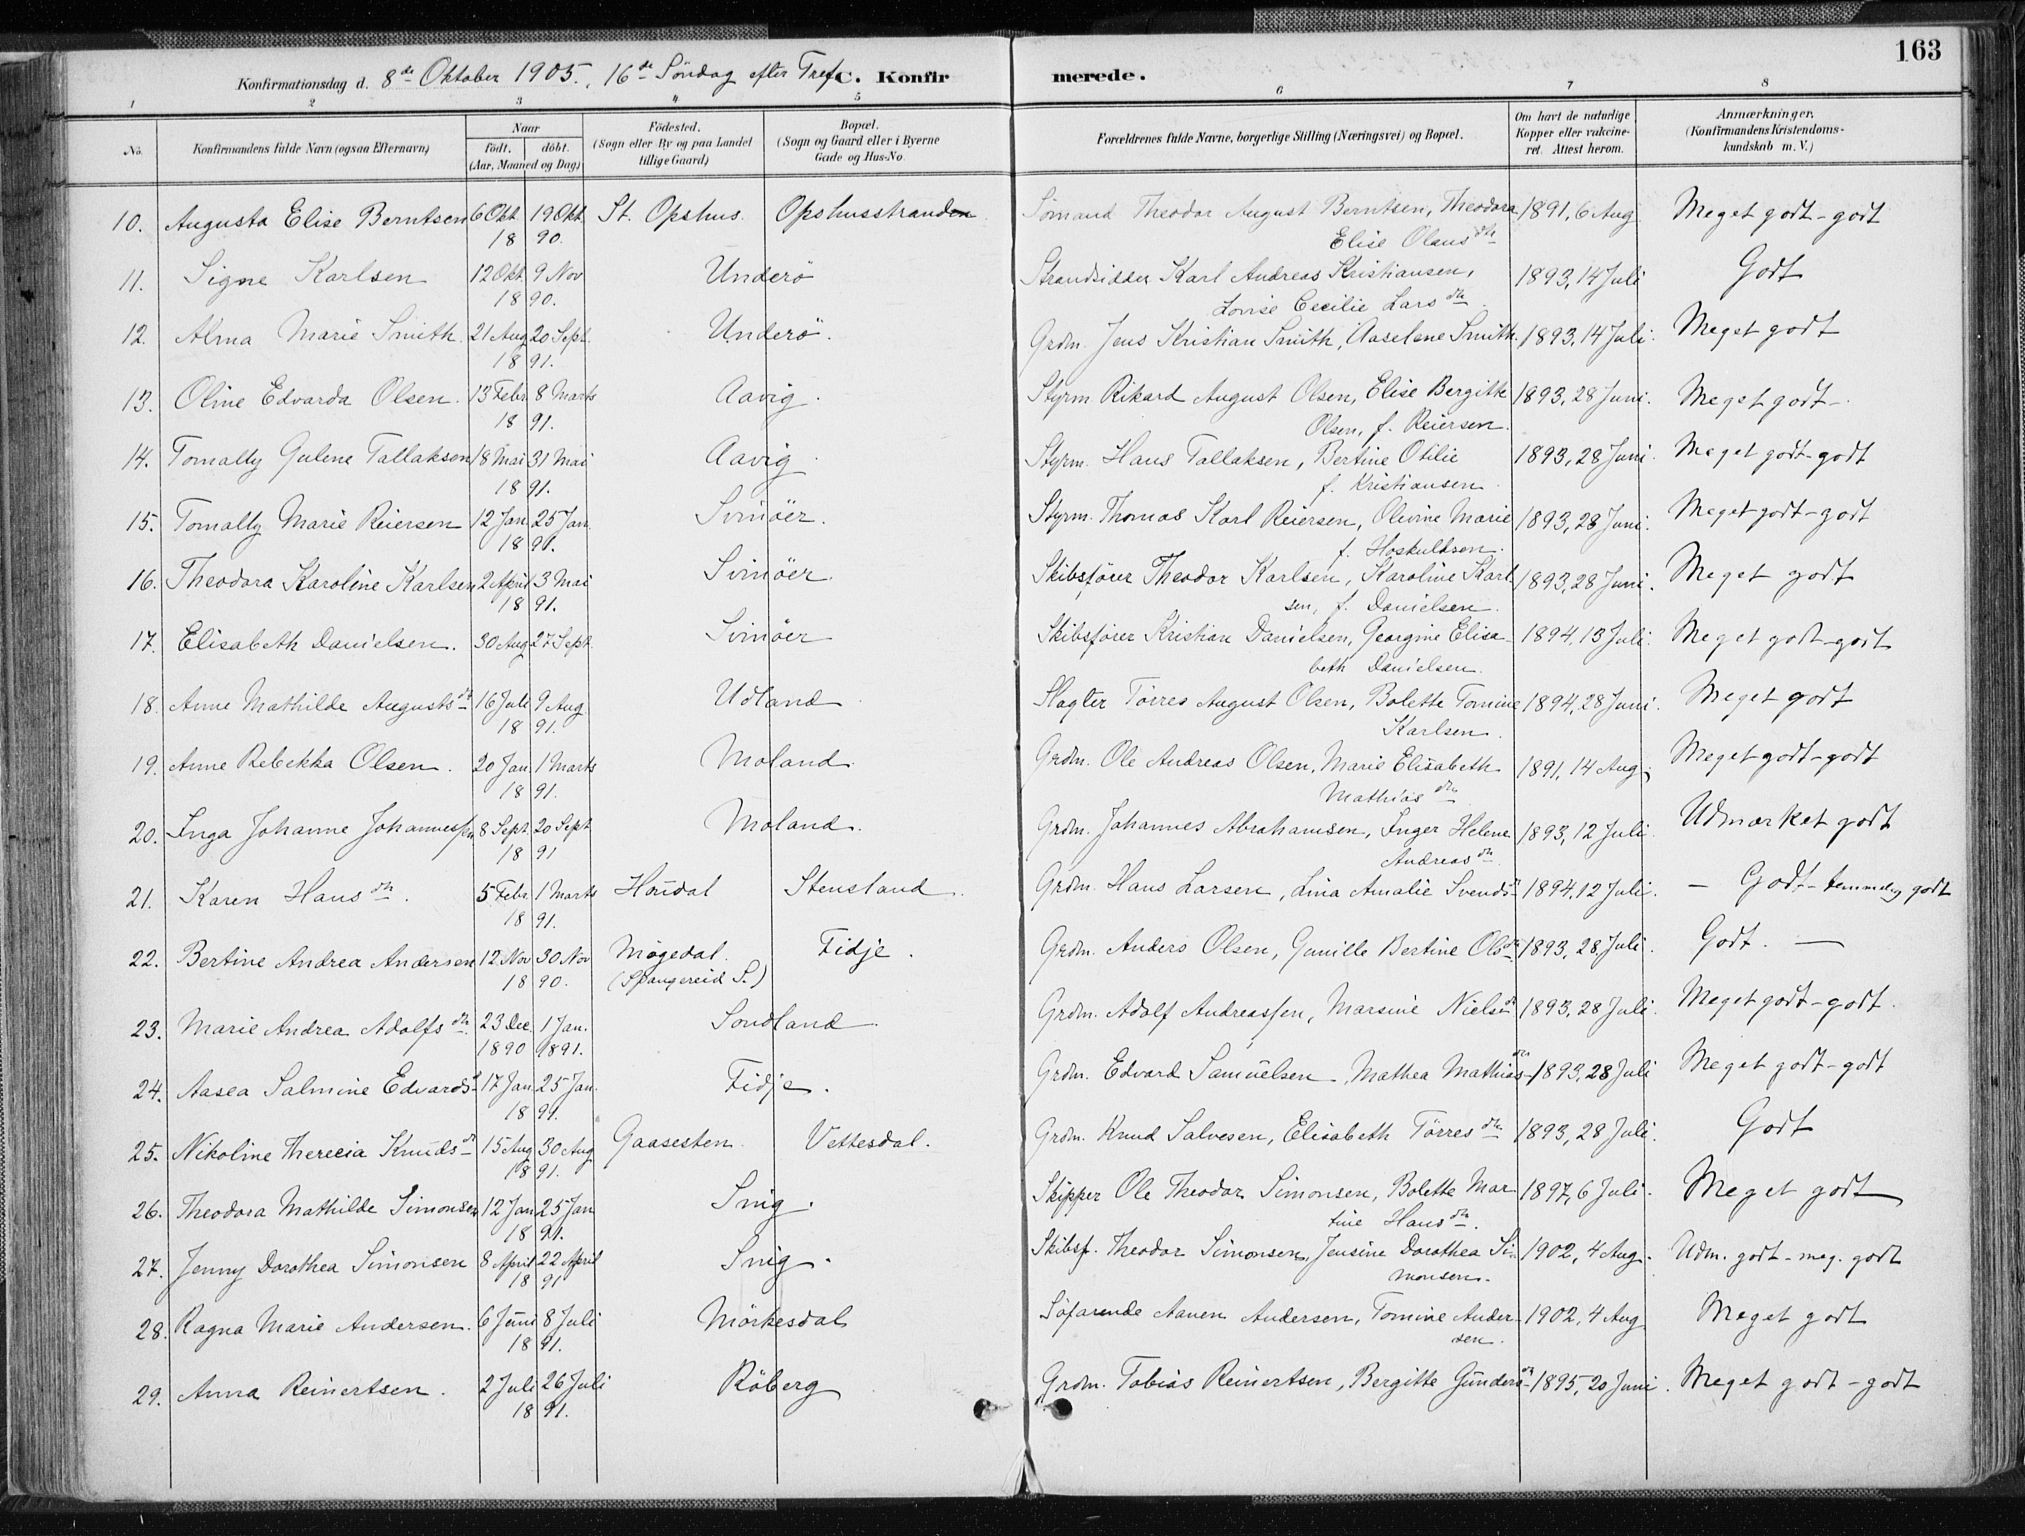 163
Konfirmationsdag d. 8de Oktober 1905, 16de Söndag efter Tref. C. Konfirmerede.
1 2 3 4 5 6 7 8
No. Konfirmandens fulde Navn (ogsaa Efternavn) Naar födt. döbt. (Aar, Maaned og Dag) Födested. (Sogn eller By og paa Landet tillige Gaard) Bopæl. (Sogn og Gaard eller i Byerne Gade og Hus-No. Forældrenes fulde Navne, borgerlige Stilling (Næringsvei) og Bopæl. Om havt de naturlige Kopper eller vakcineret. Attest herom. Anmærkninger. (Konfirmandens Kristendomskundskab m. V.)
10. Augusta Elise Berntsen 6 Okt. 19 Okt. St. Opshus. Opshusstranden Sømand Theodor August Berntsen, Theodora 1891, 6 Aug Meget godt - godt
1890. Elise Olausdtr
11. Signe Karlsen 12 Okt. 9 Nov Underö Strandsidder Karl Andreas Kristiansen, 1893, 14 Juli Godt
1890. Lovise Cecilie Larsdtr
12. Alma Marie Smith 21 Aug 20 Sept. Underö. Grdm. Jens Kristian Smith, Aaselene Smith 1893, 14 Juli. Meget godt
1891.
13. Oline Edvarda Olsen. 13 Febr 8 Marts Aavig. Styrm Rikard August Olsen, Elise Bergitte 1893, 28 Juni. Meget godt -
1891. Olsen, f. Reiersen.
14. Tomally Gulene Tallaksen 18 Mai 31 Mai Aavig Styrm. Hans Tallaksen, Bertine Otilie 1893, 28 Juni. Meget godt - godt
1891. f. Kristiansen
15. Tomally Marie Reiersen 12 Jan. 25 Jan. Svinöer. Styrm. Thomas Karl Reiersen, Olivine Marie 1893, 28 Juni. Meget godt - godt
1891. f. Hoskuldsen.
16. Theodora Karoline Karlsen 2 April 3 Mai Svinöer. Skibsfører Theodor Karlsen, Karoline Karl- 1893, 28 Juni. Meget godt
1891. sen, f. Danielsen.
17. Elisabeth Danielsen. 30 Aug 27 Sept. Svinöer Skibsfører Kristian Danielsen, Georgine Elisa- 1894, 13 Juli. Meget godt - godt
beth Danielsen.
18. Anne Mathilde Augustsdtr 16 Juli 9 Aug Udland Slagter Tørres August Olsen, Bolette Tomine 1894, 28 Juni. Meget godt
1891. Karlsen.
19. Anne Rebekka Olsen. 20 Jan. 1 Marts Moland. Grdm. Ole Andreas Olsen, Marie Elisabeth 1891, 14 Aug. Meget godt - godt
1891. Mathiasdtr
20. Inga Johanne Johannessen 8 Sept. 20 Sept Moland. Grdm. Johannes Abrahamsen, Inger Helene 1893, 12 Juli. Udmærket godt
1891 Andreasdtr.
21. Karen Hansdtr. 5 Febr. 1 Marts Houdal Stensland. Grdm. Hans Larsen, Lina Amalie Svendsdtr 1894, 12 Juli. - Godt - temmelig godt
1891.
22. Bertine Andrea Andersen 12 Nov 30 Nov Møgedal. Fidje. Grdm. Anders Olsen, Gunille Bertine Olsdtr 1893, 28 Juli. Godt. -
1890. (Spangereid S.)
23. Marie Andrea Adolfsdtr. 23 Dec. 1 Jan. Sondland Grdm. Adolf Andreassen, Marsine Nielsdtr 1893, 28 Juli. Meget godt - godt.
1890 1891.
24. Aasea Salmine Edvardsdtr 17 Jan. 25 Jan. Fidje. Grdm. Edvard Samuelsen, Mathea Mathiasdtr 1893, 28 Juli Meget godt - godt
1891.
25. Nikoline Therecia Knudsdtr 15 Aug 30 Aug Gaasesten Vettesdal. Grdm. Knud Salvesen, Elisabeth Tørresdtr 1893, 28 Juli. Godt
1891.
26. Theodora Mathilde Simonsen 12 Jan 25 Jan Snig. Skipper Ole Theodor Simonsen, Bolette Mar 1897, 6 Juli. Meget godt
1891. tine Hansdtr.
27. Jenny Dorothea Simonsen 8 April 22 April Snig. Skibsf. Theodor Simonsen, Jensine Dorothea Si- 1902, 4 Aug. Udm. godt - meg. godt
1891 monsen.
28. Ragna Marie Andersen. 6 Juni 8 Juli Mörkesdal Søfarende Aanen Andersen, Tomine Ander- 1902, 4 Aug Meget godt
1891. sen.
29. Anna Reinertsen. 2 Juli 26 Juli Röberg Grdm. Tobias Reinertsen, Bergitte Gundersdtr 1895, 20 Juni. Meget godt - godt
1891.